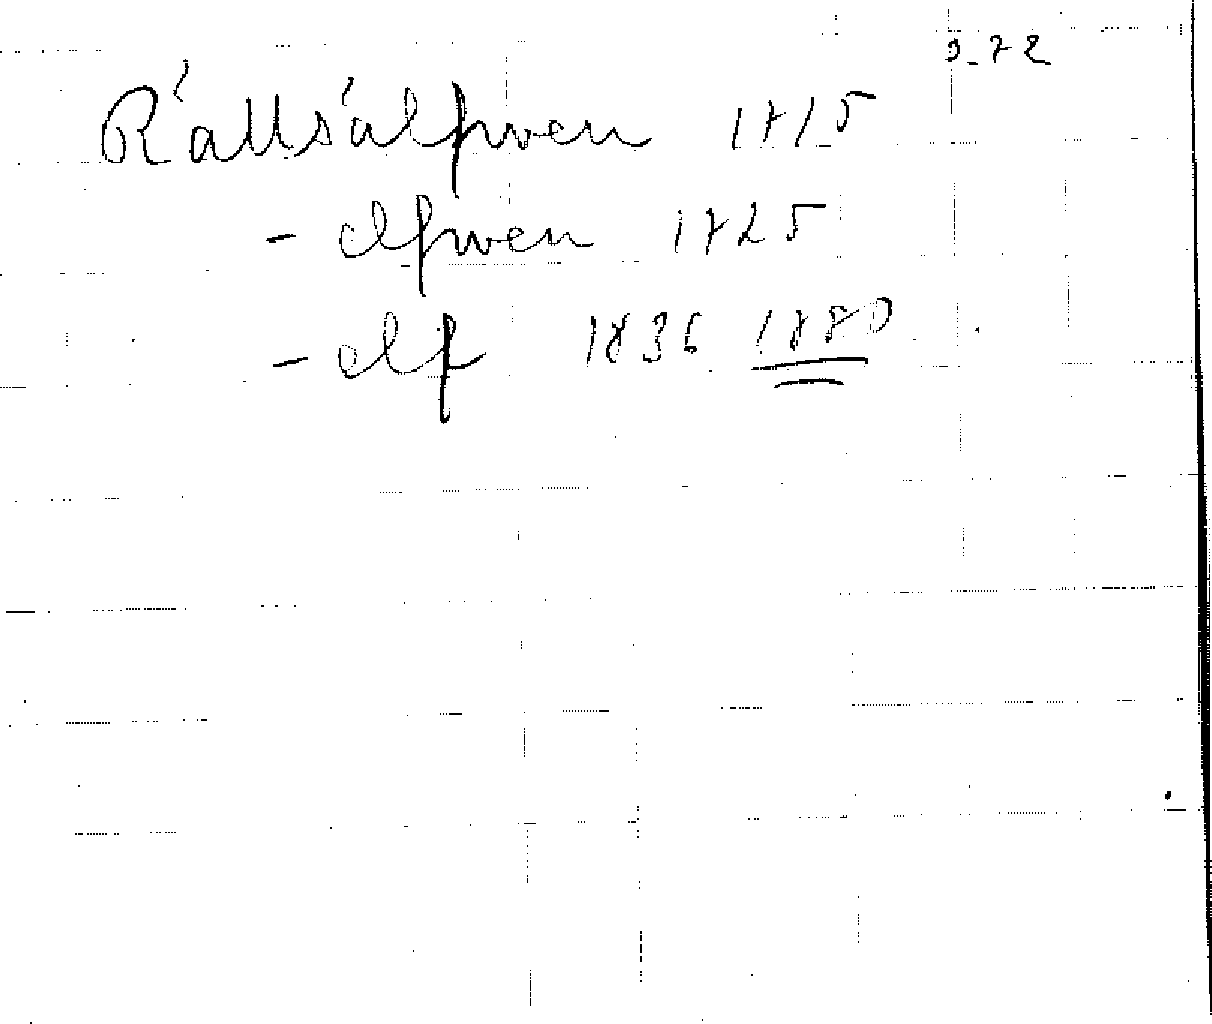 Rällsälfwen 1715
- elfwen 1725
- elf 1836 1880